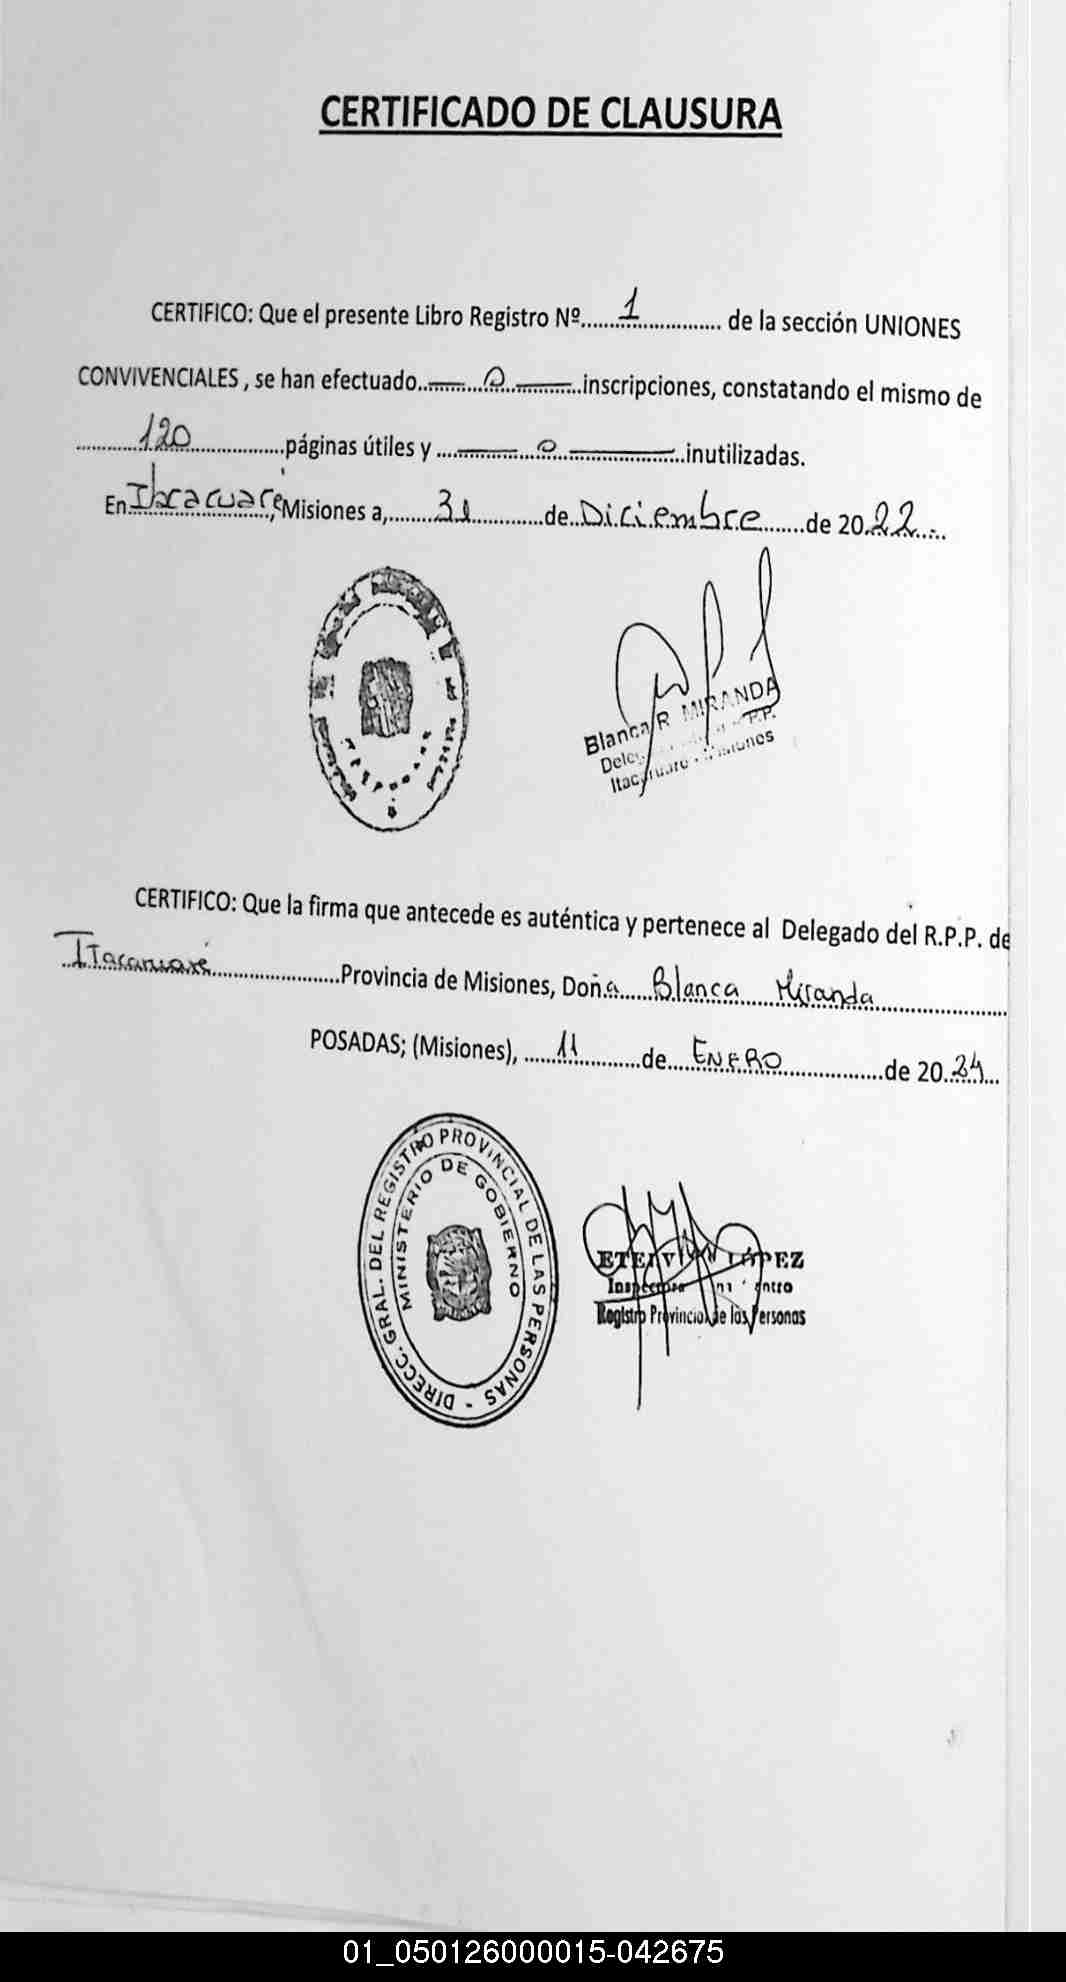 CERTIFICADO DE CLAUSURA
CERTIFICO: Que el presente Libro Registro Nº......1...... de la sección UNIONES
CONVIVENCIALES , se han efectuado..——..0..——..inscripciones, constatando el mismo de
......120......páginas útiles y ...——...0...——...inutilizadas.
En Itacaruaré, Misiones a,......31......de..Diciembre......de 20.22....
Blanca R. MIRANDA
Itacaruaré - Misiones
CERTIFICO: Que la firma que antecede es auténtica y pertenece al Delegado del R.P.P. de
Itacaruaré......Provincia de Misiones, Doña......Blanca Miranda......
POSADAS; (Misiones), ......11......de......ENERO......de 20.24...
DIRECC. GRAL. DEL REGISTRO PROVINCIAL DE LAS PERSONAS -
MINISTERIO DE GOBIERNO
LÓPEZ
Registro Provincial de las Personas
01_050126000015-042675